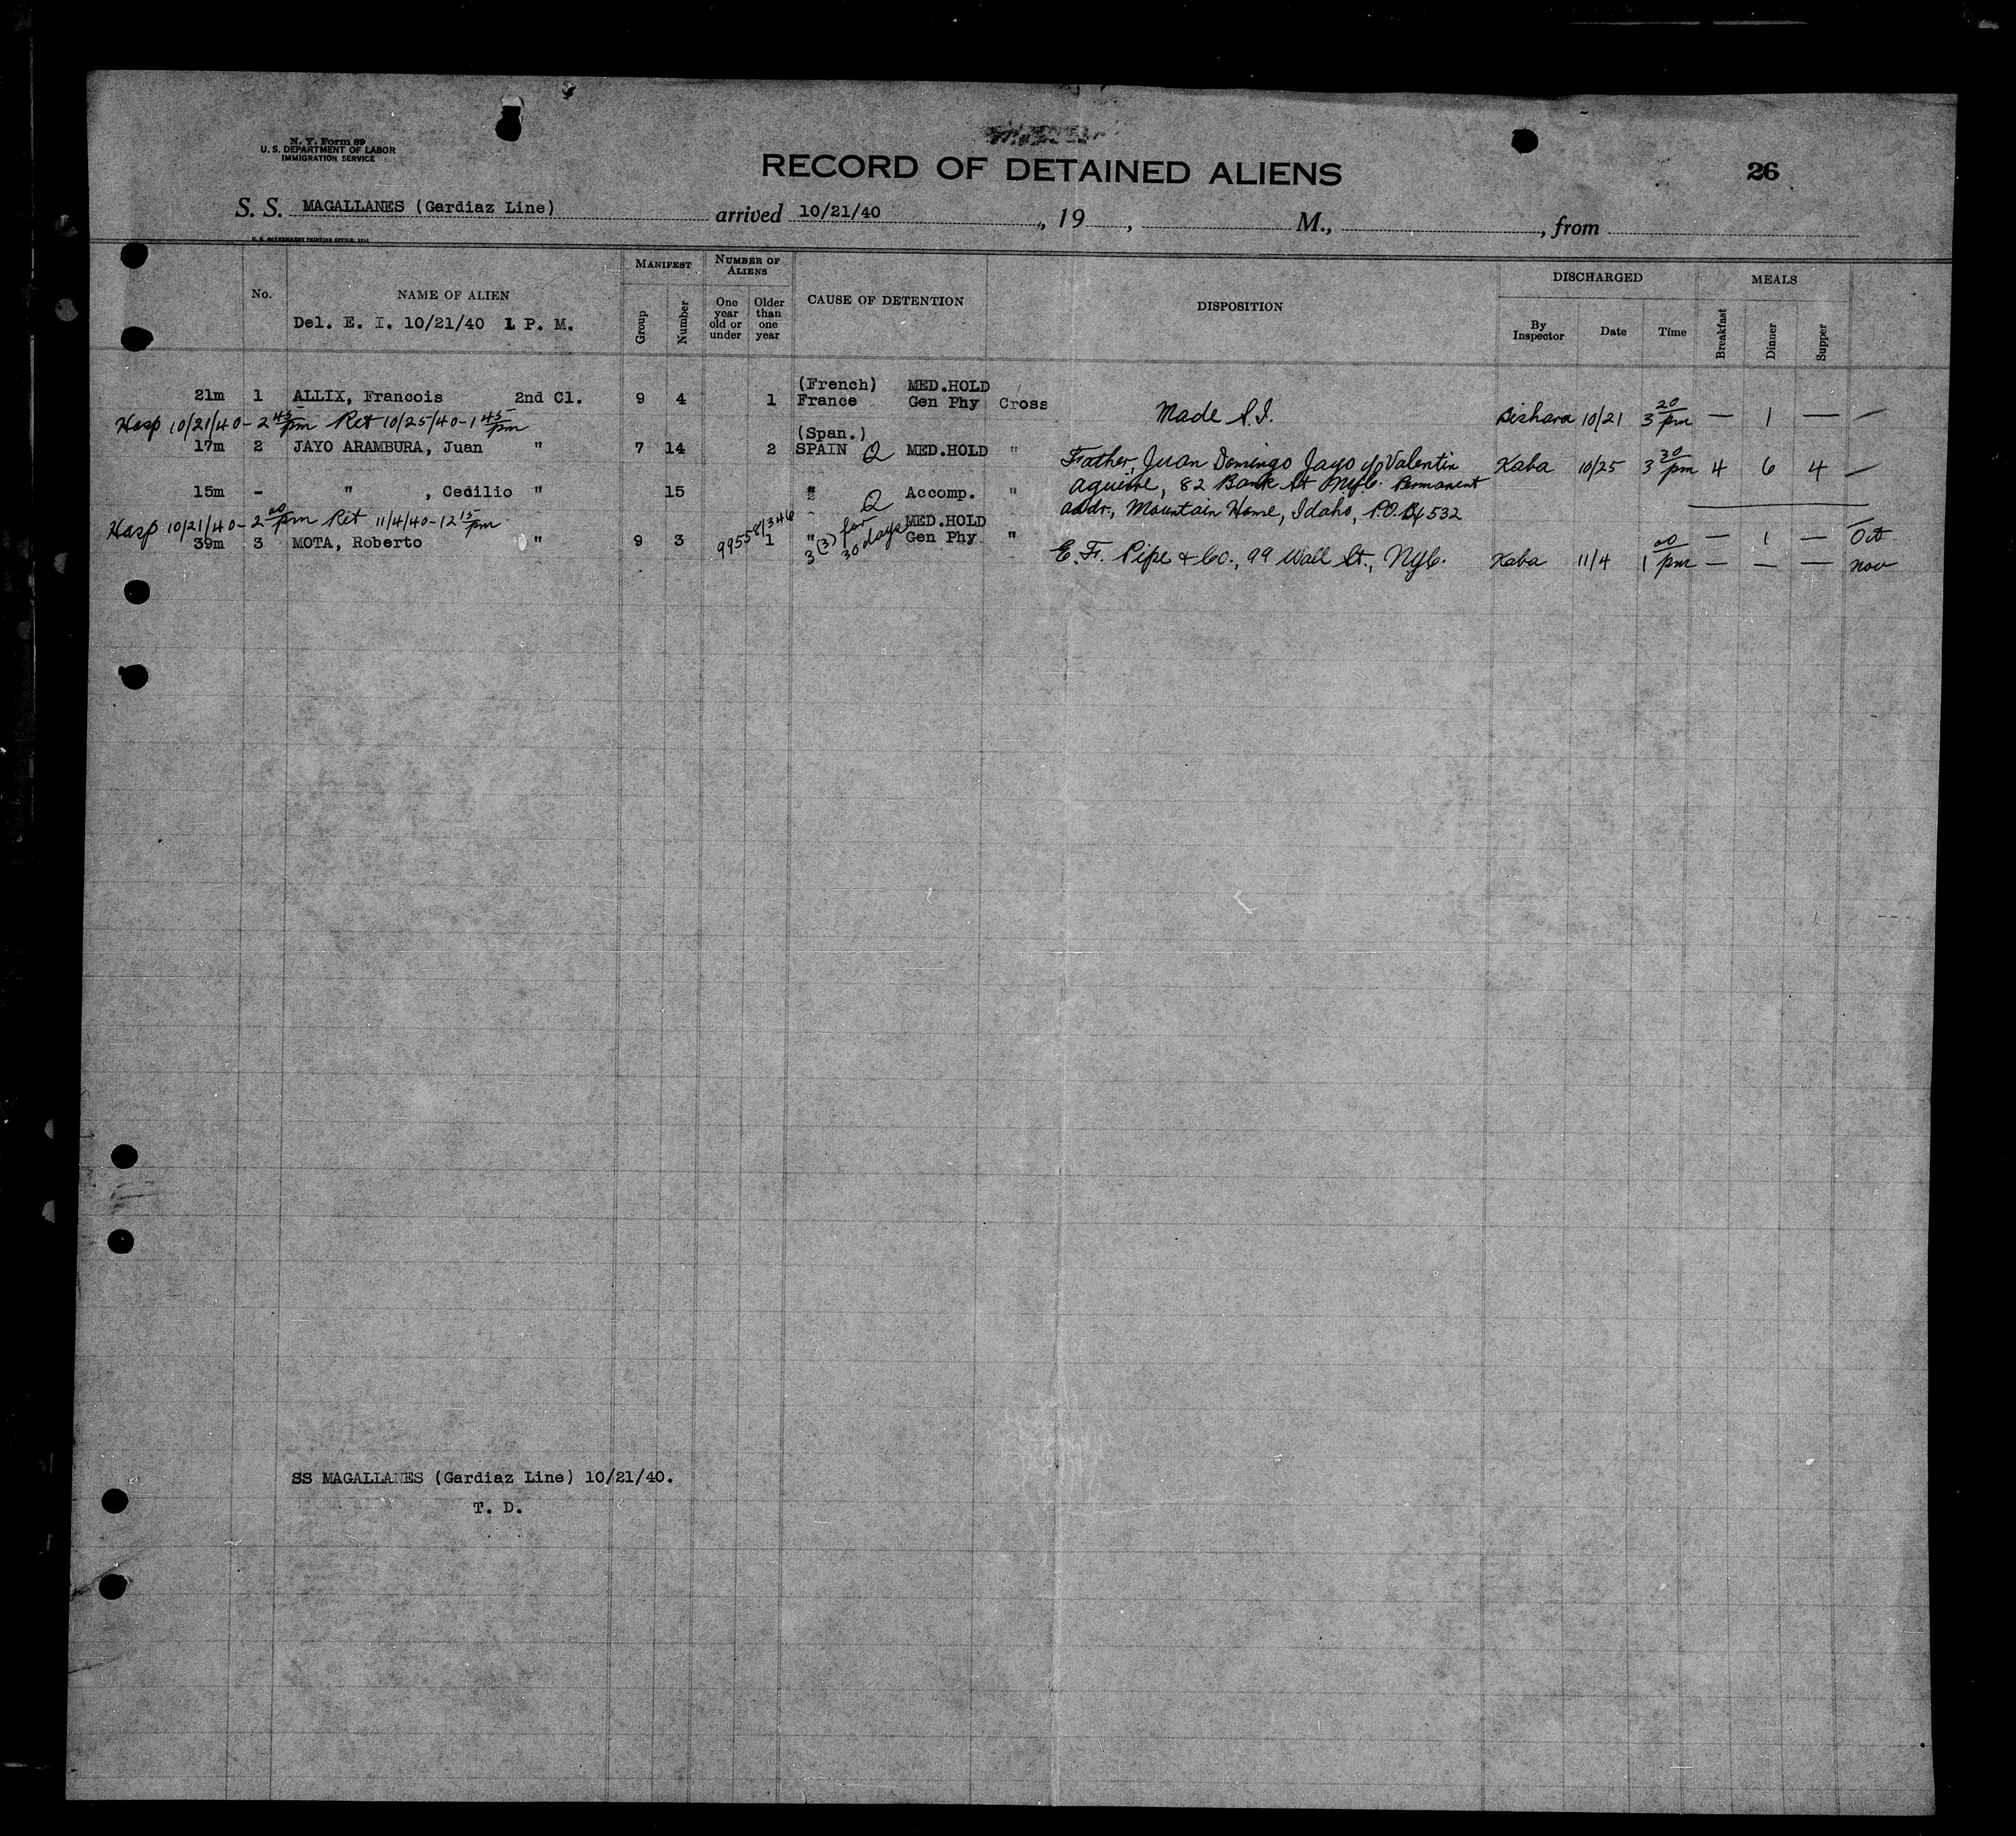 N. Y. Form 89
U. S. DEPARTMENT OF LABOR
IMMIGRATION SERVICE
RECORD OF DETAINED ALIENS
26
S. S. MAGALLANES (Gardiaz Line) arrived 10/21/40 , 19 , M., , from
U. S. GOVERNMENT PRINTING OFFICE: 1941
No. NAME OF ALIEN MANIFEST NUMBER OF ALIENS CAUSE OF DETENTION DISPOSITION DISCHARGED MEALS
Group Number One year old or under Older than one year By Inspector Date Time Breakfast Dinner Supper
Del. E. I. 10/21/40 1 P. M.
(French) MED.HOLD
21m 1 ALLIX, Francois 2nd Cl. 9 4 1 France Gen Phy Cross Made S.I. Bishara 10/21 3 20/pm — 1 — —
Hosp 10/21/40 - 2 45/pm Ret 10/25/40 - 1 45/pm
(Span.)
17m 2 JAYO ARAMBURA, Juan " 7 14 2 SPAIN Q MED.HOLD " Father, Juan Domingo Jayo c/o Valentin Kaba 10/25 3 30/pm 4 6 4 —
15m - " , Cecilio " 15 " Q Accomp. " Aguirre, 82 Bank St NYC. Permanent
addr., Mountain Home, Idaho, P.O. Bx 532
Hosp 10/21/40 - 2 00/pm Ret 11/4/40 - 12 15/pm
99558/346 3(3) for 30 days MED.HOLD
39m 3 MOTA, Roberto " 9 3 1 " Gen Phy " — 1 — Oct
E. F. Pipe & Co., 99 Wall St., NYC. Kaba 11/4 1 00/pm — — — Nov
SS MAGALLANES (Gardiaz Line) 10/21/40.
T. D.